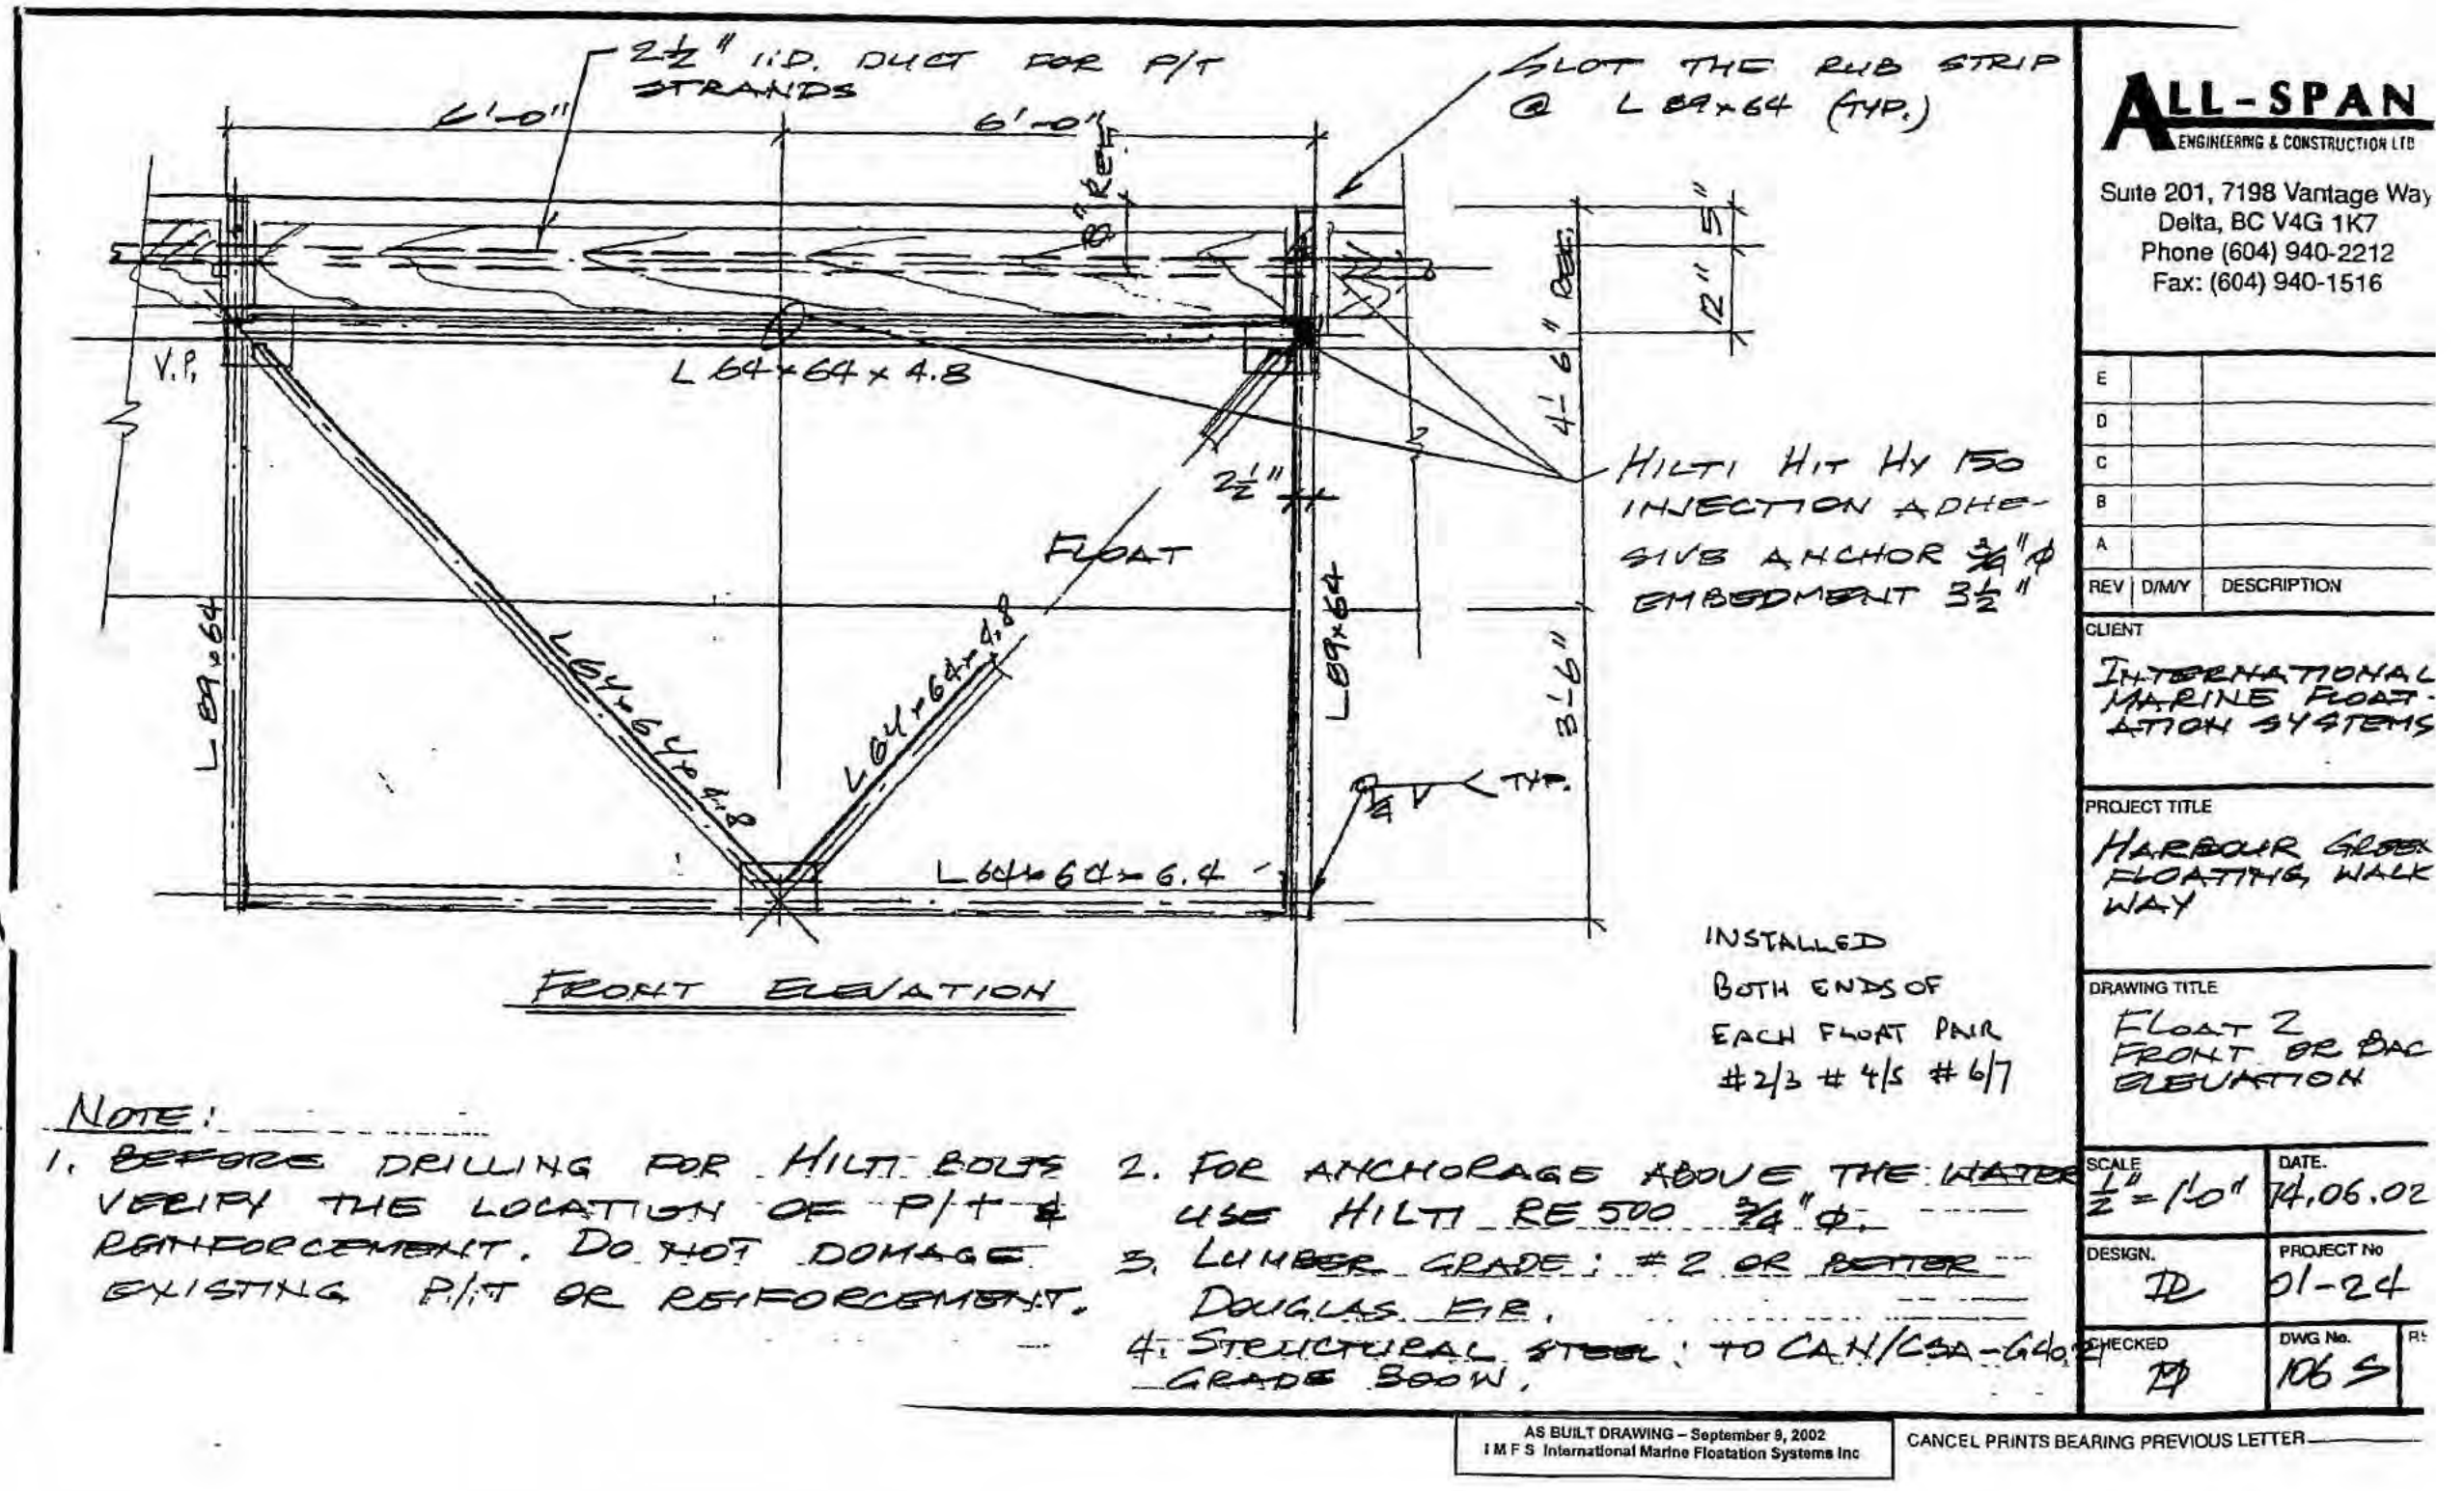 2½" I.D. DUCT FOR P/T
STRANDS
SLOT THE RUB STRIP
@ L 89×64 (TYP.)
6'-0"
6'-0"
8" REF.
5"
12"
4'-6" REF.
V.P.
L 64×64×4.8
2½"
HILTI HIT HY 150
INJECTION ADHE-
SIVE ANCHOR ¾"φ
EMBEDMENT 3½"
FLOAT
L 89×64
L 64×64×4.8
L 64×64×4.8
L 89×64
3'-6"
¼ TYP.
L 64×64×6.4
FRONT ELEVATION
INSTALLED
BOTH ENDS OF
EACH FLOAT PAIR
#2/3 #4/5 #6/7
NOTE:
1. BEFORE DRILLING FOR HILTI BOLTS
VERIFY THE LOCATION OF P/T &
REINFORCEMENT. DO NOT DOMAGE
EXISTING P/T OR REIFORCEMENT.
2. FOR ANCHORAGE ABOVE THE WATER
USE HILTI RE 500 ¾"φ.
3. LUMBER GRADE: #2 OR BETTER
DOUGLAS FIR.
4. STRUCTURAL STEEL: TO CAN/CSA-G40.21
GRADE 300W.
ALL-SPAN
ENGINEERING & CONSTRUCTION LTD
Suite 201, 7198 Vantage Way
Delta, BC V4G 1K7
Phone (604) 940-2212
Fax: (604) 940-1516
E
D
C
B
A
REV D/M/Y DESCRIPTION
CLIENT
INTERNATIONAL
MARINE FLOAT-
ATION SYSTEMS
PROJECT TITLE
HARBOUR GREEN
FLOATING WALK
WAY
DRAWING TITLE
FLOAT 2
FRONT OR BAC
ELEVATION
SCALE
½"=1'-0"
DATE.
14.06.02
DESIGN.
PROJECT No
01-24
CHECKED
DWG No.
106 S
AS BUILT DRAWING – September 9, 2002
I M F S International Marine Floatation Systems Inc
CANCEL PRINTS BEARING PREVIOUS LETTER